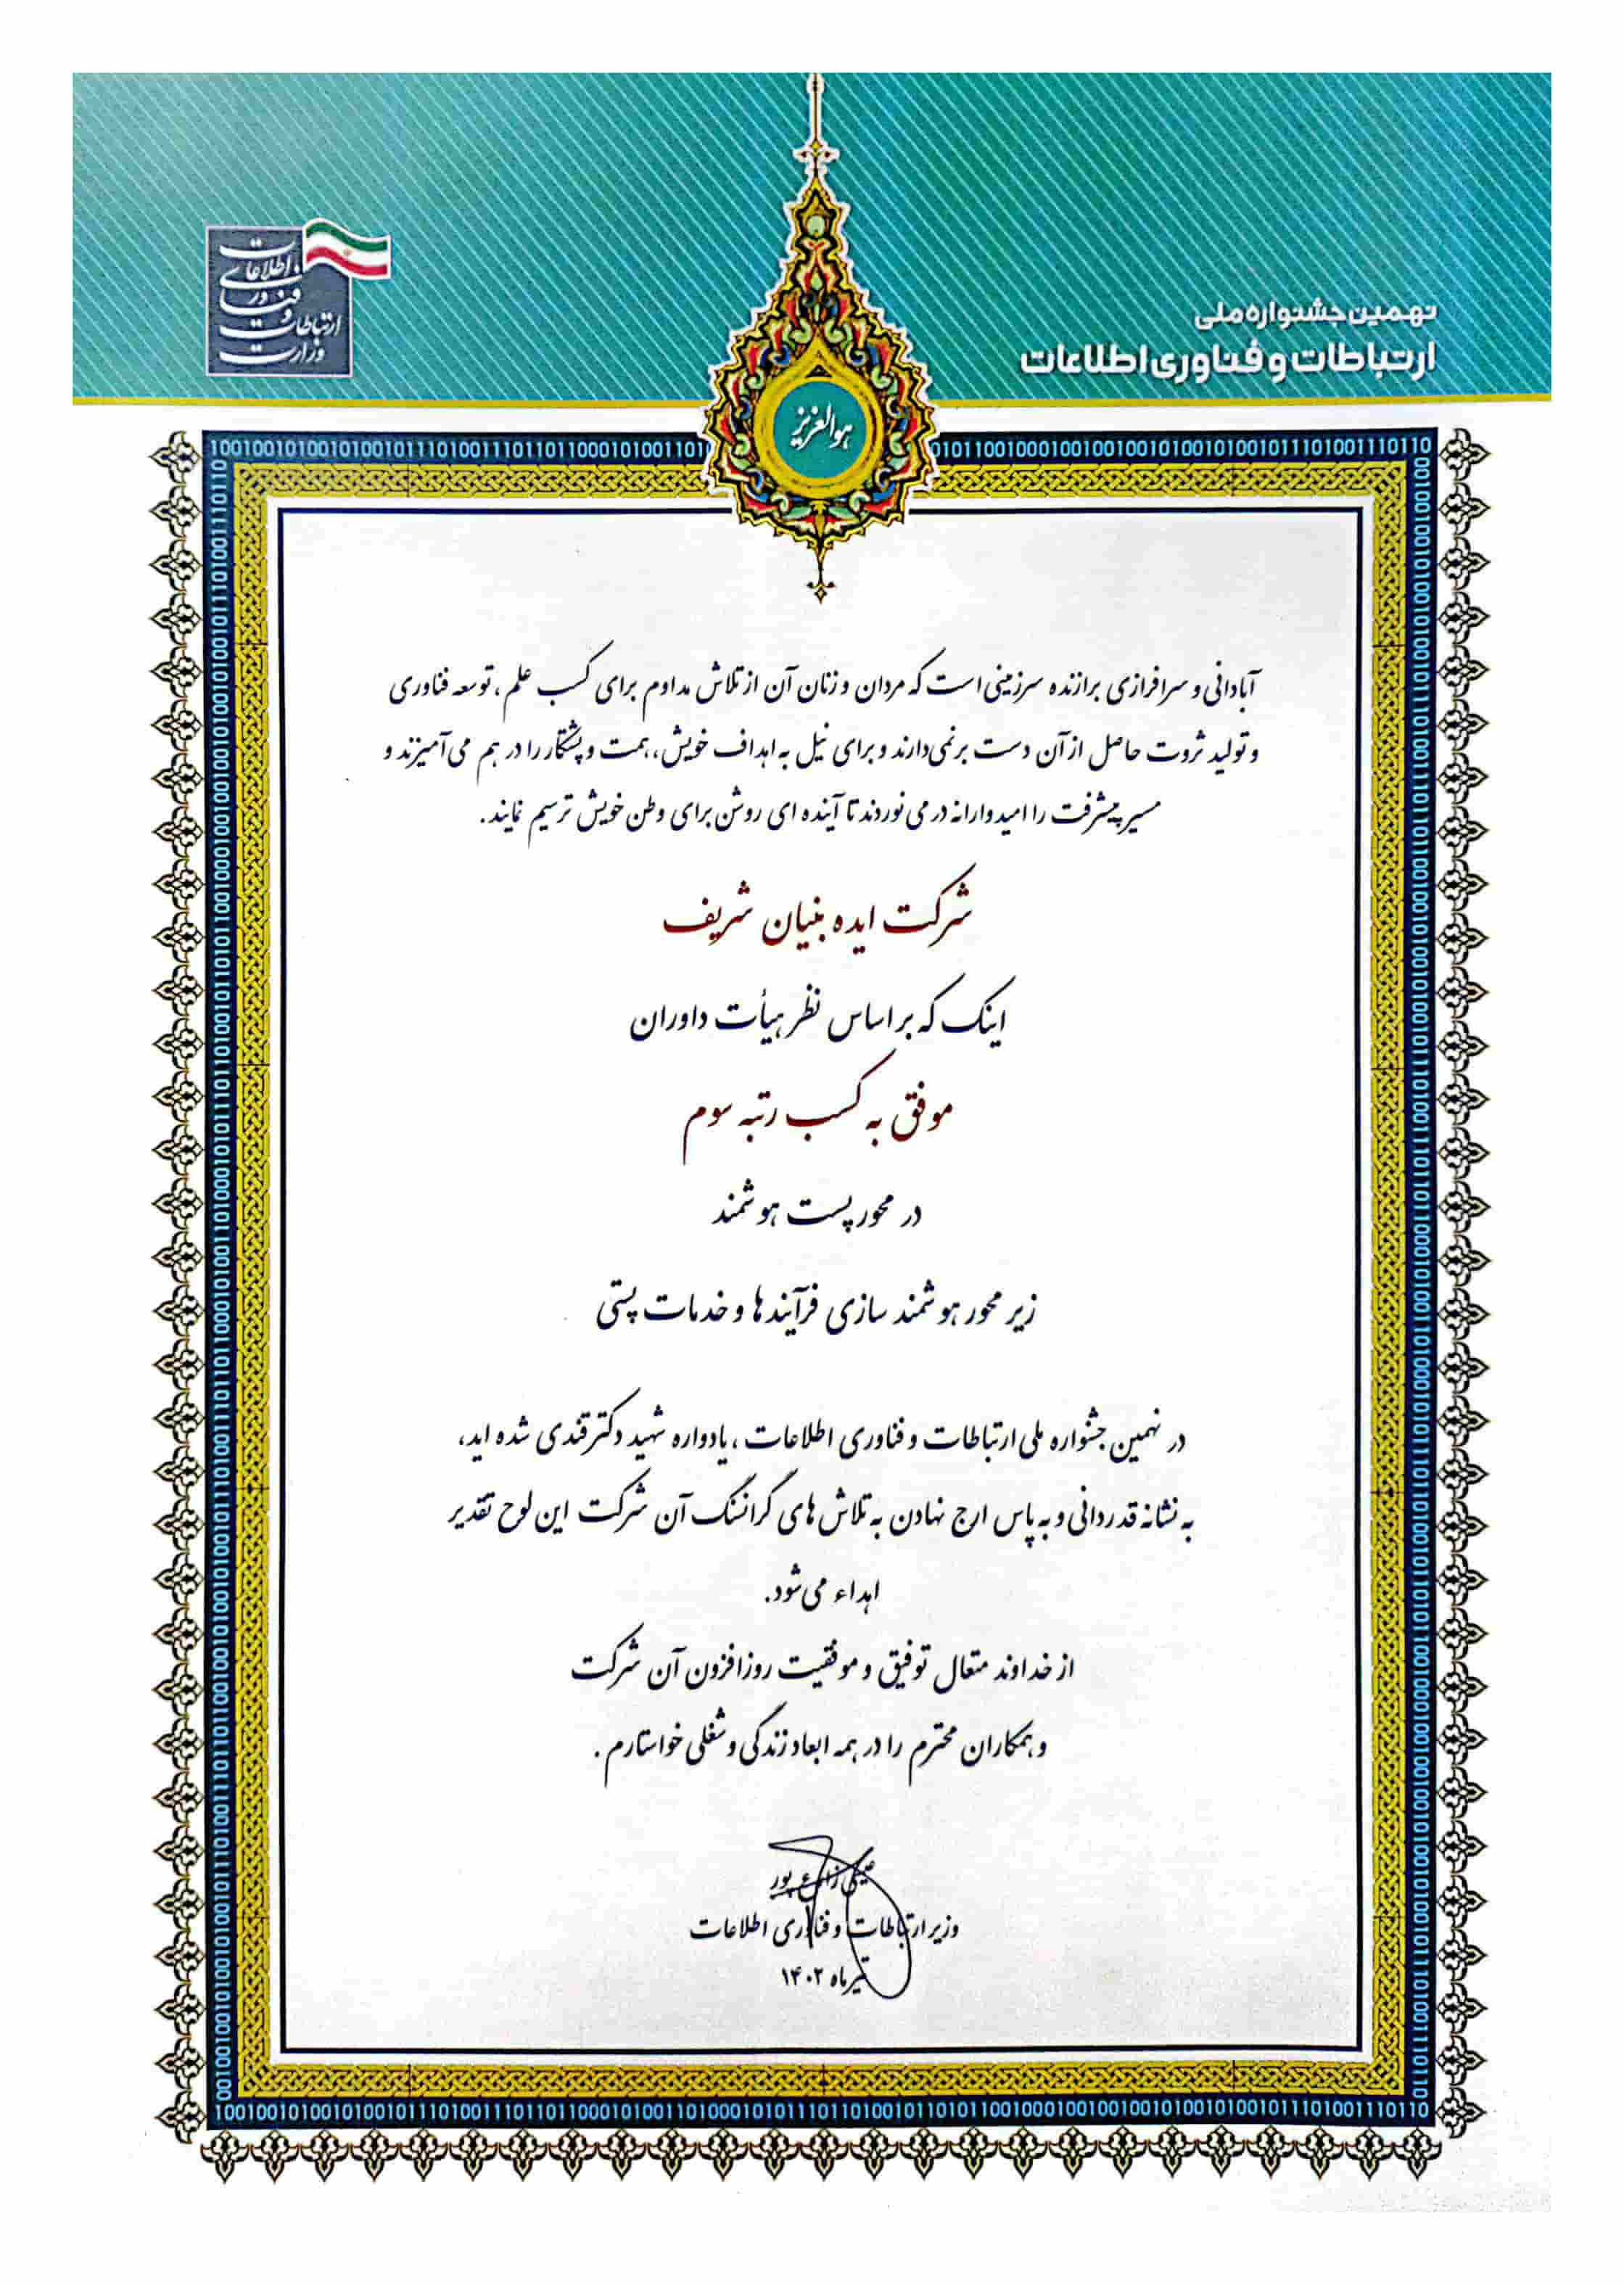 نهمین جشنواره ملی
ارتباطات و فناوری اطلاعات
وزارت
ارتباطات
و
فناوری
اطلاعات
هوالعزیز
آبادانی و سرافرازی برازنده سرزمینی است که مردان و زنان آن از تلاش مداوم برای کسب علم، توسعه فناوری
و تولید ثروت حاصل از آن دست برنمی‌دارند و برای نیل به اهداف خویش، همت و پشتکار را در هم می‌آمیزند و
مسیر پیشرفت را امیدوارانه در می نوردند تا آینده ای روشن برای وطن خویش ترسیم نمایند.
شرکت ایده بنیان شریف
اینک که بر اساس نظر هیأت داوران
موفق به کسب رتبه سوم
در محور پست هوشمند
زیر محور هوشمند سازی فرآیندها و خدمات پستی
در نهمین جشنواره ملی ارتباطات و فناوری اطلاعات، یادواره شهید دکتر قندی شده اید،
به نشانه قدردانی و به پاس ارج نهادن به تلاش های گرانسنگ آن شرکت این لوح تقدیر
اهداء می‌شود.
از خداوند متعال توفیق و موفقیت روزافزون آن شرکت
و همکاران محترم را در همه ابعاد زندگی و شغلی خواستارم.
عیسی زارع پور
وزیر ارتباطات و فناوری اطلاعات
تیرماه ۱۴۰۲